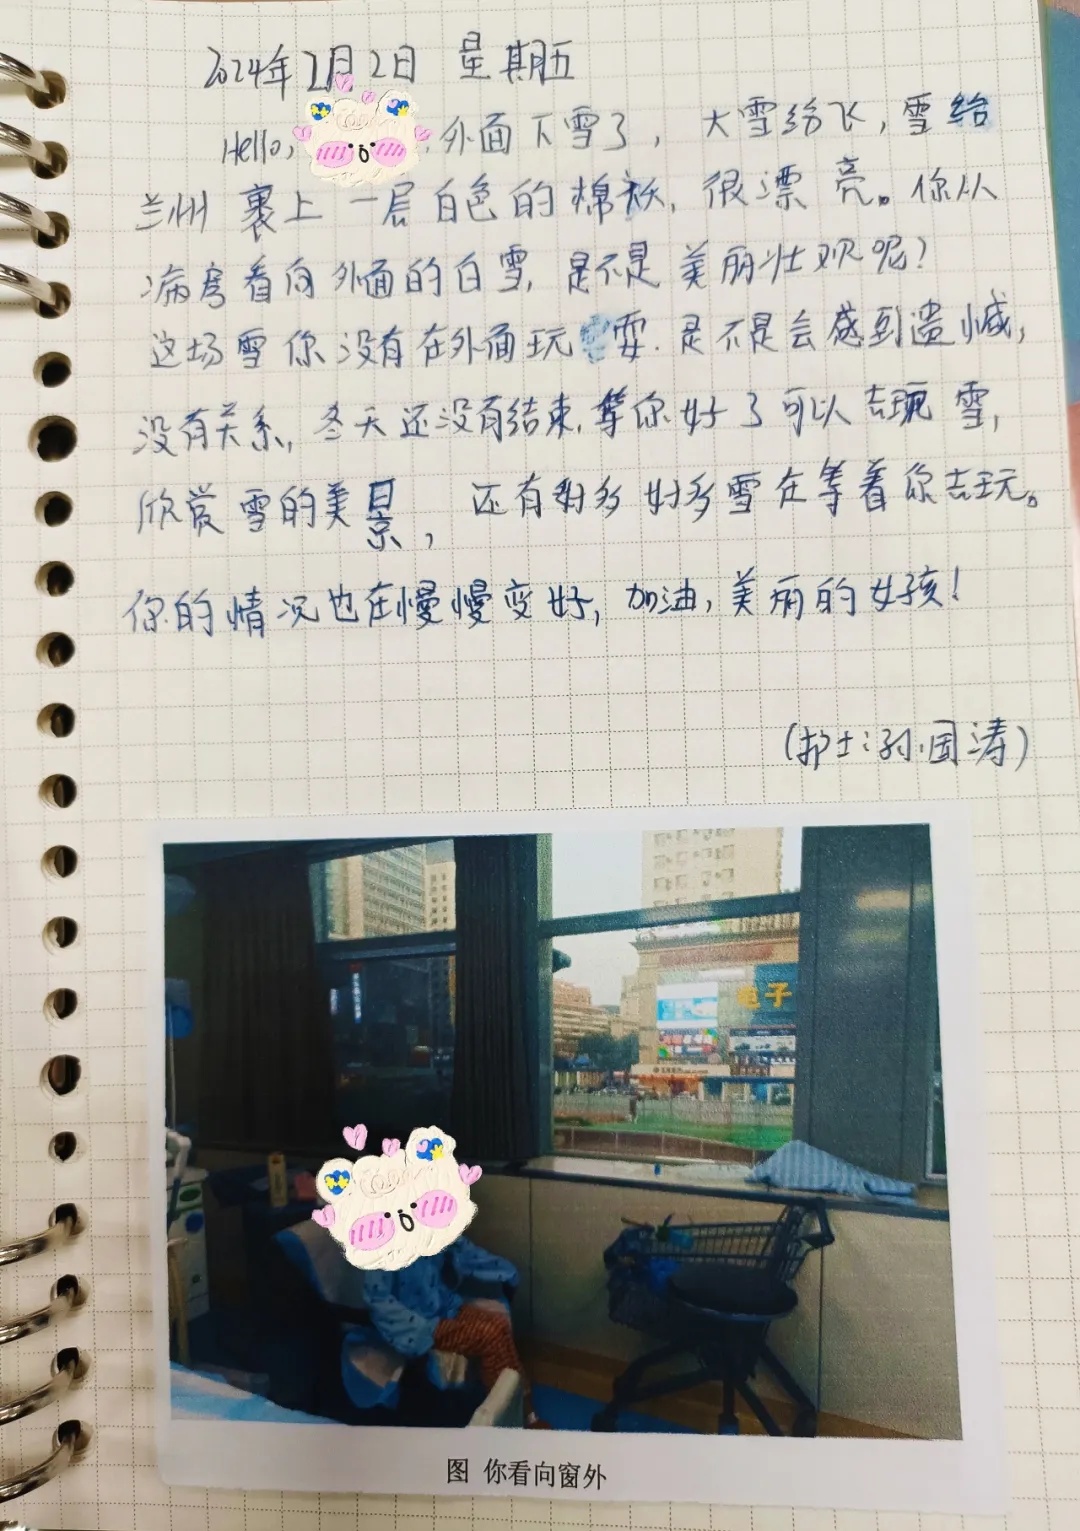 2024年2月2日 星期五
Hello, 外面下雪了，大雪纷飞，雪给
兰州裹上一层白色的棉袄，很漂亮。你从
病房看向外面的白雪，是不是美丽壮观呢？
这场雪你没有在外面玩耍．是不是会感到遗憾，
没有关系，冬天还没有结束，等你好了可以去玩雪，
欣赏雪的美景，还有好多好多雪在等着你去玩。
你的情况也在慢慢变好，加油，美丽的女孩！
（护士：孙国涛）
电子
图 你看向窗外